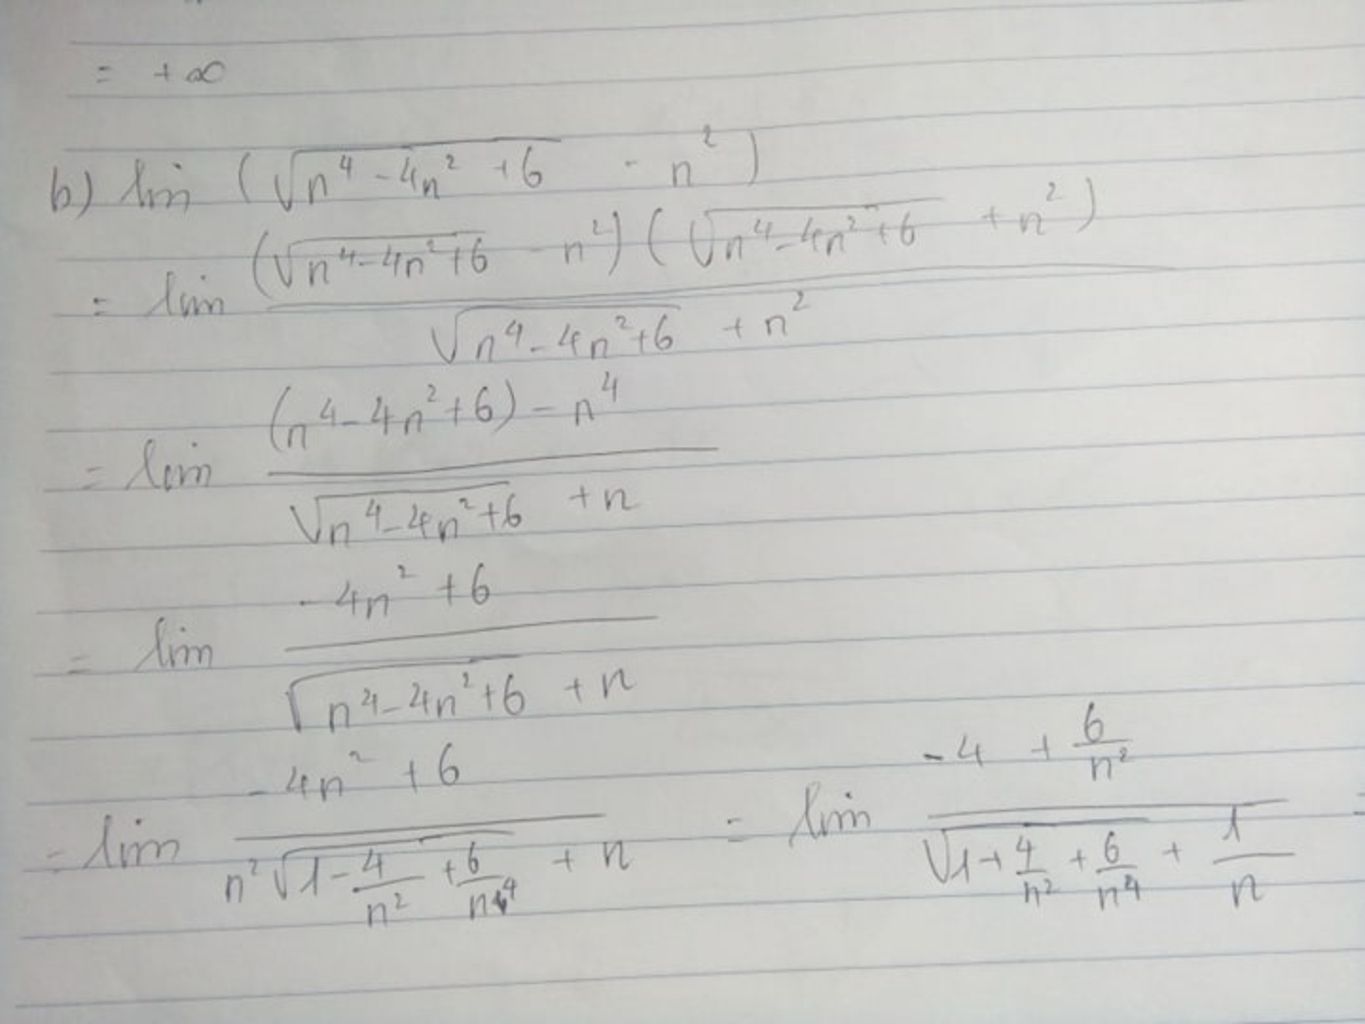 = +∞
b) lim (√(n⁴ - 4n² + 6) - n²)
= lim ((√(n⁴ - 4n² + 6) - n²)(√(n⁴ - 4n² + 6) + n²)) / (√(n⁴ - 4n² + 6) + n²)
= lim ((n⁴ - 4n² + 6) - n⁴) / (√(n⁴ - 4n² + 6) + n)
= lim (-4n² + 6) / (√(n⁴ - 4n² + 6) + n)
= lim (-4n² + 6) / (n²√(1 - 4/n² + 6/n⁴) + n) = lim (-4 + 6/n²) / (√(1 + 4/n² + 6/n⁴) + 1/n) =